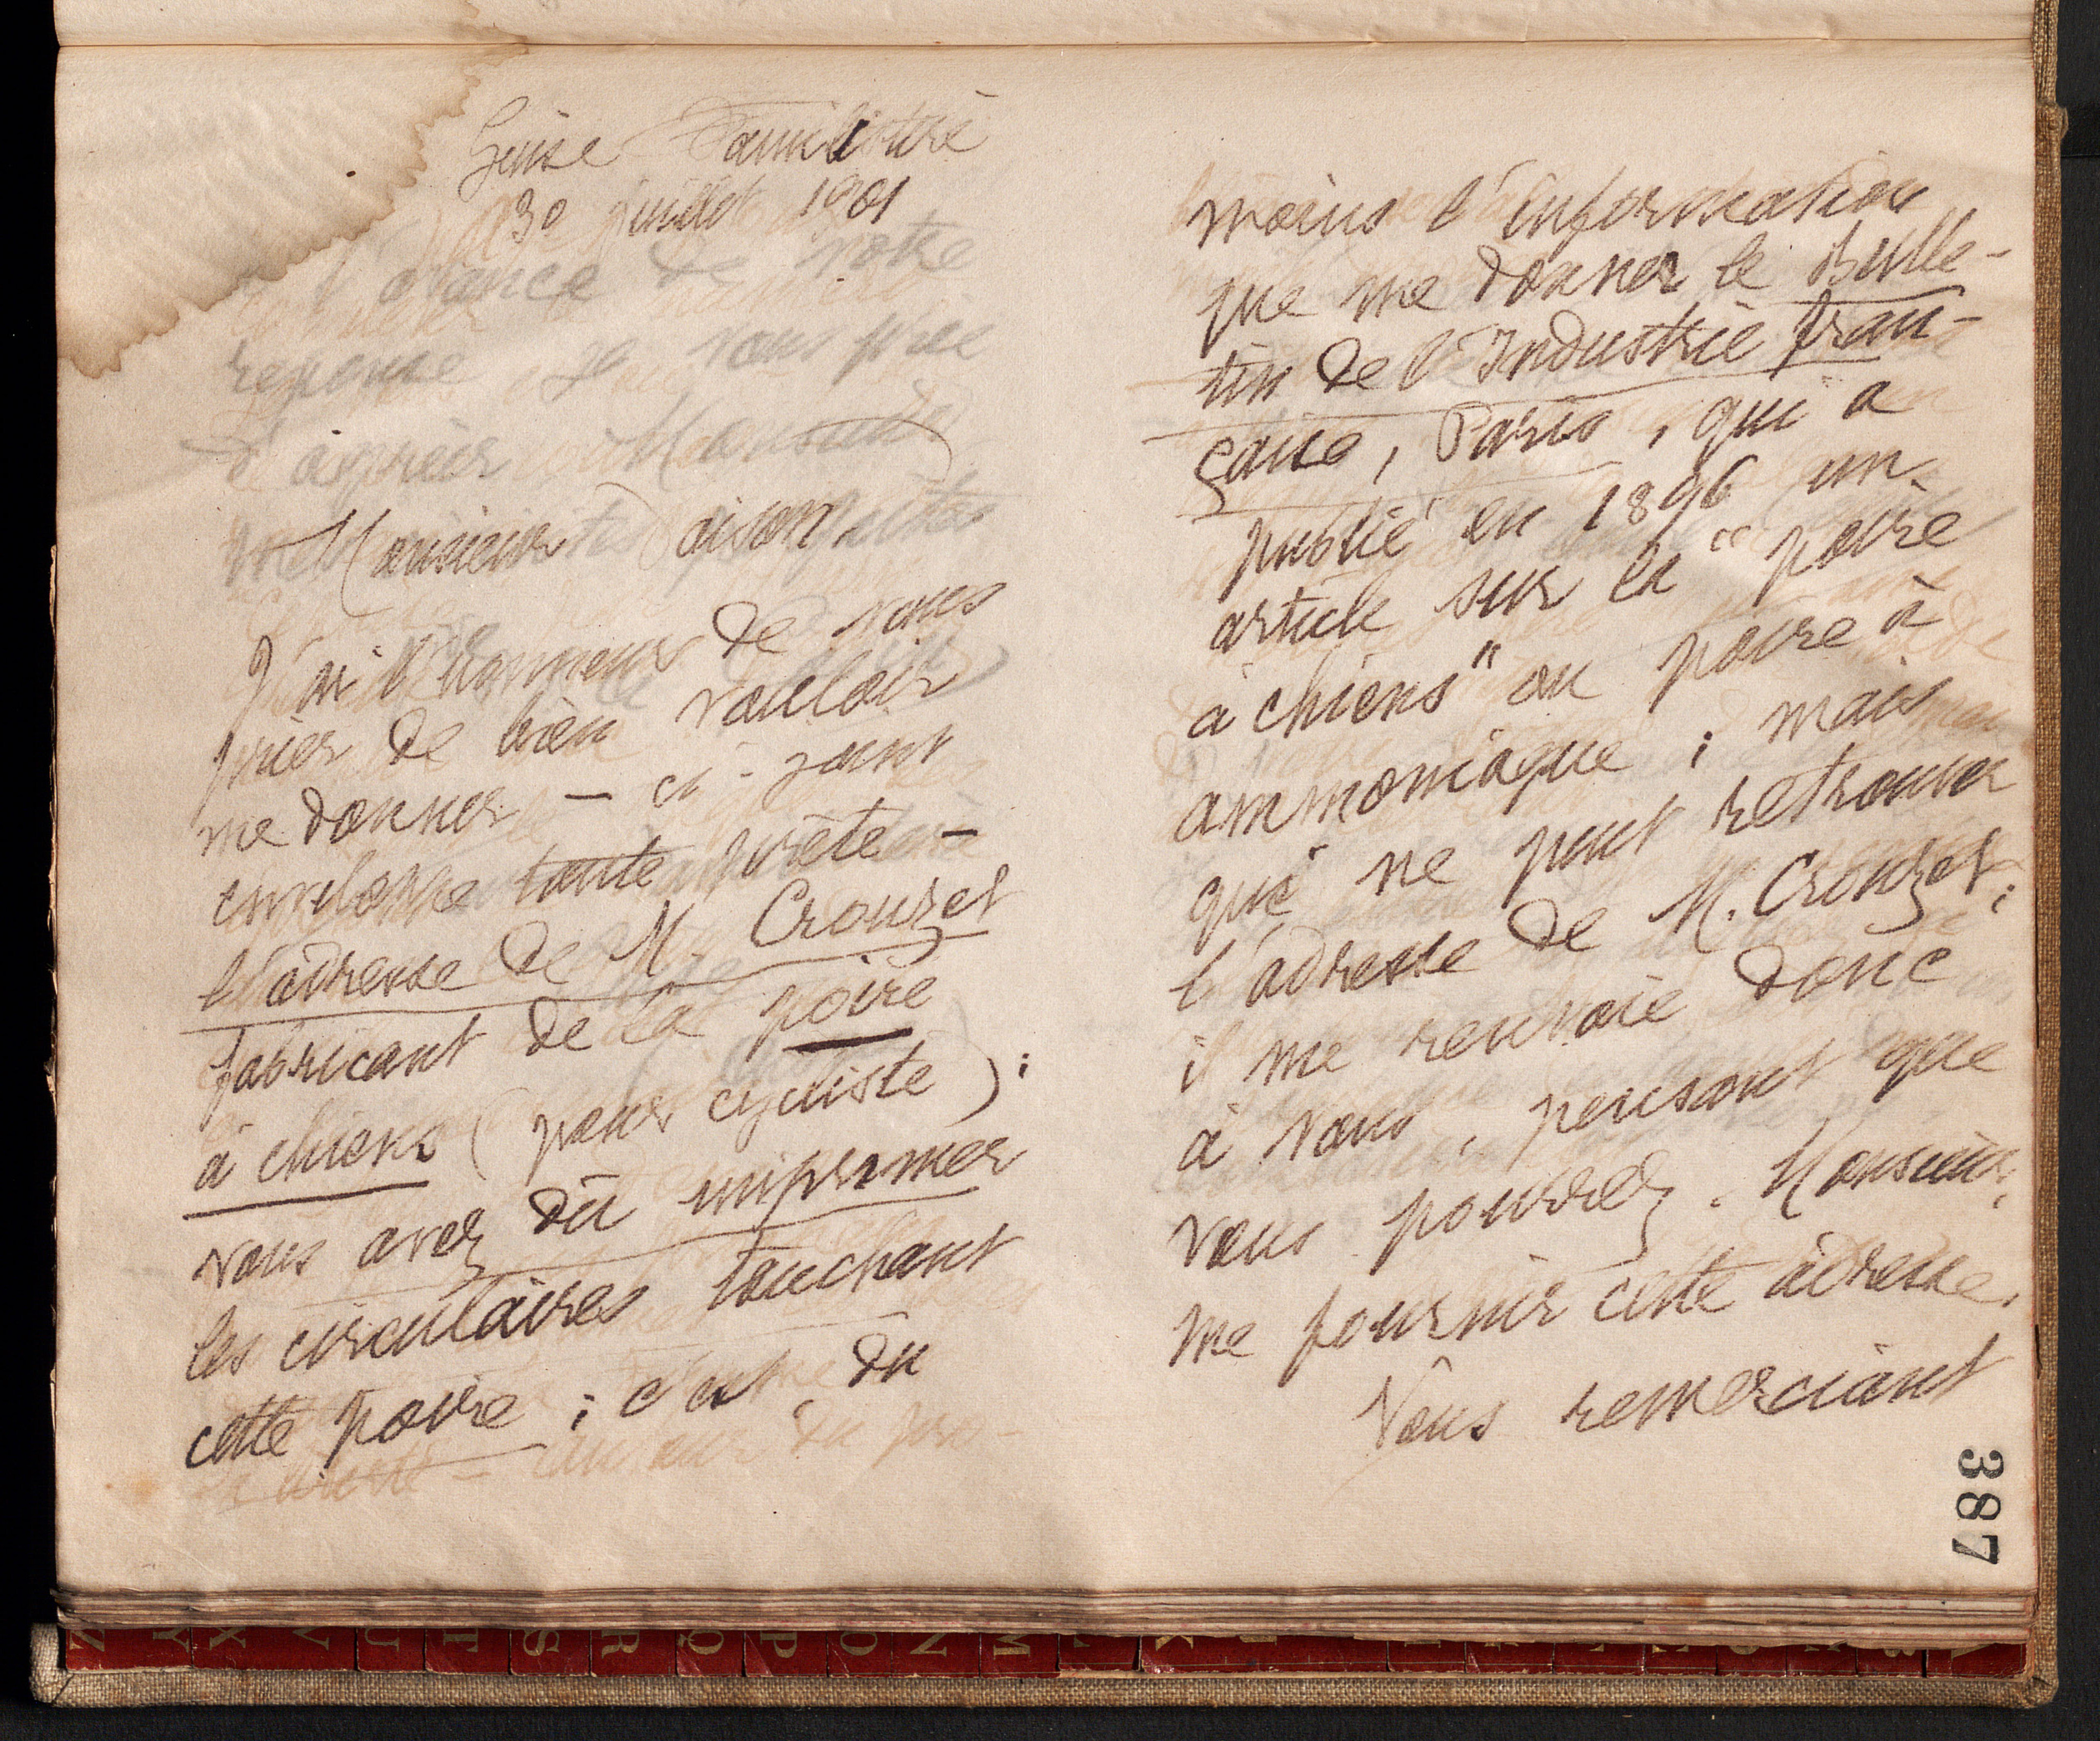 Guise Familistère
30 juillet 1901
d'avance de votre
réponse je vous prie
d'agréer Monsieur
mes
Monsieur
J'ai l'honneur de vous
prier de bien vouloir
me donner – ci-joint
enveloppe toute prête –
l'adresse de M. Crouzet
fabricant de la poire
à chiens (pour cycliste);
vous avez dû imprimer
les circulaires touchant
cette poire ; c'est du
moins l'information
que me donner le Bulle-
tin de l'Industrie fran-
çaise, Paris, qui a
publié en 1896 un
article sur la "poire
à chiens" ou poire à
ammoniaque ; mais
qui ne peut retrouver
l'adresse de M. Crouzet;
il me renvoie donc
à vous, pensant que
vous pourrez, Monsieur,
me fournir cette adresse.
Vous remerciant
387
Z Y X V U T S R Q P O N M